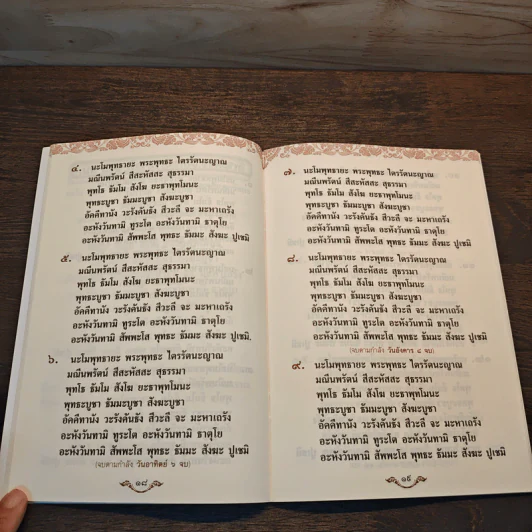 ๔. นะโมพุทธายะ พระพุทธะ ไตรรัตนะญาณ
มณีนพรัตน์ สีสะหัสสะ สุธรรมา
พุทโธ ธัมโม สังโฆ ยะธาพุทโมนะ
พุทธะบูชา ธัมมะบูชา สังฆะบูชา
อัคคีทานัง วะรังคันธัง สีวะลี จะ มะหาเถรัง
อะหังวันทามิ ทูระโต อะหังวันทามิ ธาตุโย
อะหังวันทามิ สัพพะโส พุทธะ ธัมมะ สังฆะ ปูเชมิ
๕. นะโมพุทธายะ พระพุทธะ ไตรรัตนะญาณ
มณีนพรัตน์ สีสะหัสสะ สุธรรมา
พุทโธ ธัมโม สังโฆ ยะธาพุทโมนะ
พุทธะบูชา ธัมมะบูชา สังฆะบูชา
อัคคีทานัง วะรังคันธัง สีวะลี จะ มะหาเถรัง
อะหังวันทามิ ทูระโต อะหังวันทามิ ธาตุโย
อะหังวันทามิ สัพพะโส พุทธะ ธัมมะ สังฆะ ปูเชมิ
๖. นะโมพุทธายะ พระพุทธะ ไตรรัตนะญาณ
มณีนพรัตน์ สีสะหัสสะ สุธรรมา
พุทโธ ธัมโม สังโฆ ยะธาพุทโมนะ
พุทธะบูชา ธัมมะบูชา สังฆะบูชา
อัคคีทานัง วะรังคันธัง สีวะลี จะ มะหาเถรัง
อะหังวันทามิ ทูระโต อะหังวันทามิ ธาตุโย
อะหังวันทามิ สัพพะโส พุทธะ ธัมมะ สังฆะ ปูเชมิ
(จบตามกำลัง วันอาทิตย์ ๖ จบ)
๑๘
๗. นะโมพุทธายะ พระพุทธะ ไตรรัตนะญาณ
มณีนพรัตน์ สีสะหัสสะ สุธรรมา
พุทโธ ธัมโม สังโฆ ยะธาพุทโมนะ
พุทธะบูชา ธัมมะบูชา สังฆะบูชา
อัคคีทานัง วะรังคันธัง สีวะลี จะ มะหาเถรัง
อะหังวันทามิ ทูระโต อะหังวันทามิ ธาตุโย
อะหังวันทามิ สัพพะโส พุทธะ ธัมมะ สังฆะ ปูเชมิ
๘. นะโมพุทธายะ พระพุทธะ ไตรรัตนะญาณ
มณีนพรัตน์ สีสะหัสสะ สุธรรมา
พุทโธ ธัมโม สังโฆ ยะธาพุทโมนะ
พุทธะบูชา ธัมมะบูชา สังฆะบูชา
อัคคีทานัง วะรังคันธัง สีวะลี จะ มะหาเถรัง
อะหังวันทามิ ทูระโต อะหังวันทามิ ธาตุโย
อะหังวันทามิ สัพพะโส พุทธะ ธัมมะ สังฆะ ปูเชมิ
(จบตามกำลัง วันอังคาร ๘ จบ)
๙. นะโมพุทธายะ พระพุทธะ ไตรรัตนะญาณ
มณีนพรัตน์ สีสะหัสสะ สุธรรมา
พุทโธ ธัมโม สังโฆ ยะธาพุทโมนะ
พุทธะบูชา ธัมมะบูชา สังฆะบูชา
อัคคีทานัง วะรังคันธัง สีวะลี จะ มะหาเถรัง
อะหังวันทามิ ทูระโต อะหังวันทามิ ธาตุโย
อะหังวันทามิ สัพพะโส พุทธะ ธัมมะ สังฆะ ปูเชมิ
๑๙